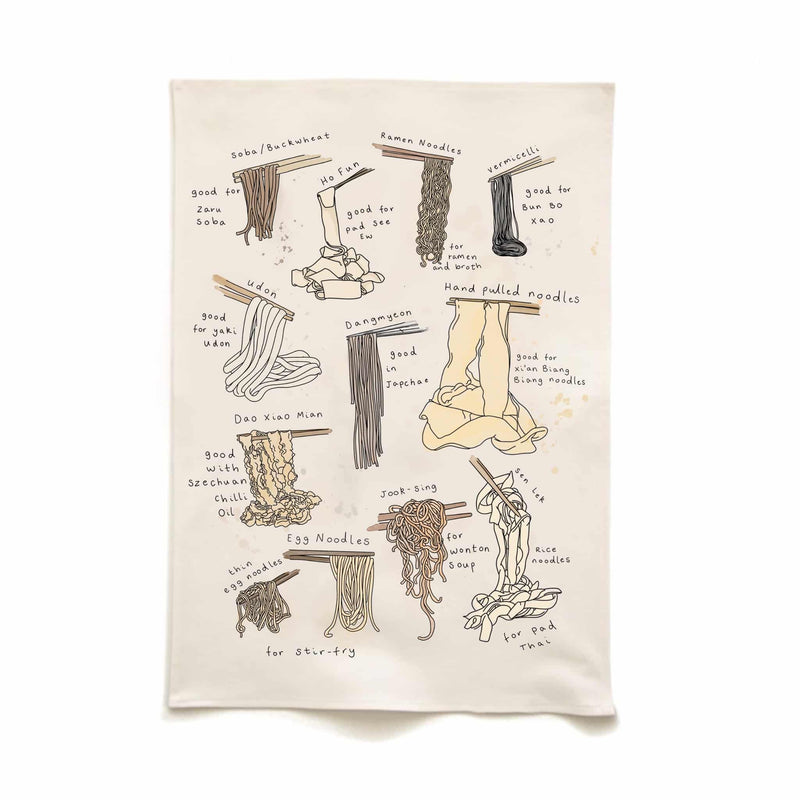 Soba/Buckwheat
good for
Zaru
Soba
Ho Fun
good for
pad see
Ew
Ramen Noodles
for
ramen
and broth
vermicelli
good for
Bun Bo
Xao
udon
good
for yaki
udon
Dangmyeon
good
in
Japchae
Hand pulled noodles
good for
xi'an Biang
Biang noodles
Dao Xiao Mian
good
with
Szechuan
chilli
Oil
Jook-Sing
for
wonton
Soup
Sen lek
Rice
noodles
for pad
Thai
Egg Noodles
thin
egg noodles
for stir-fry